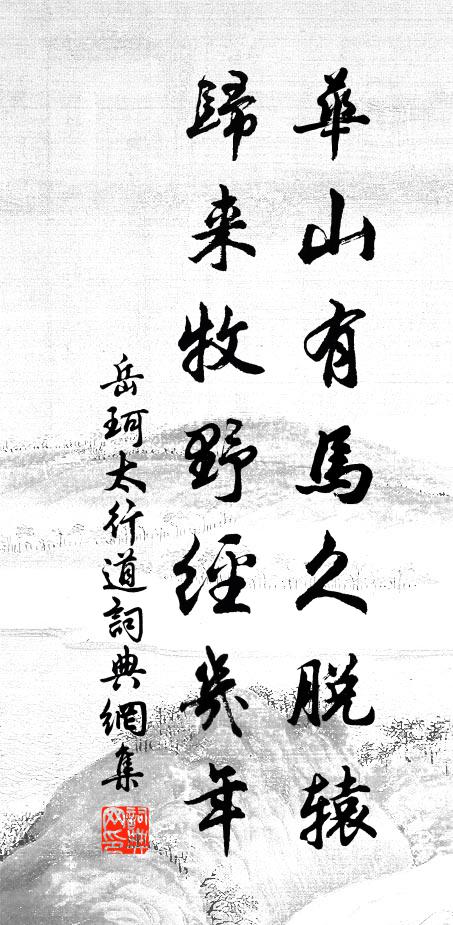 華山有馬久脱辕
歸来牧野經幾年
岳珂太行道詞典網集